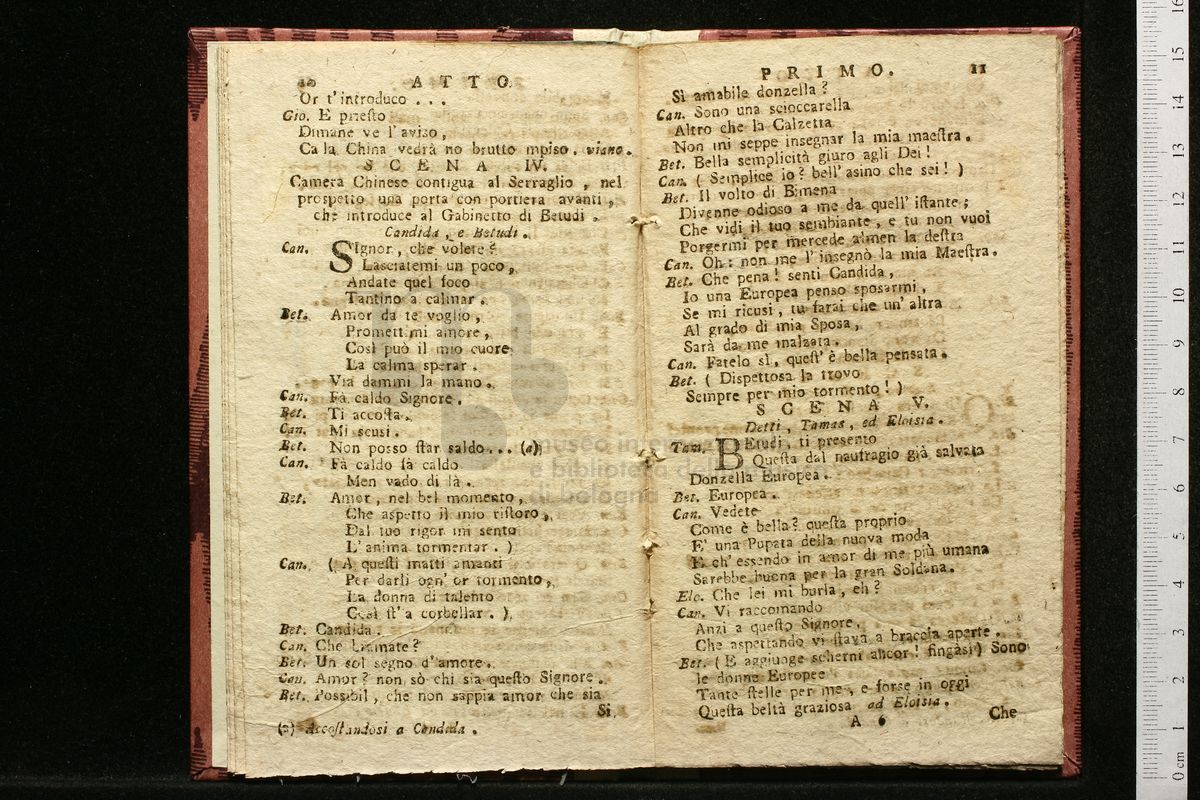 10 ATTO
Or t'introduco ...
Gio. E priesto
Dimane ve l'aviso,
Ca la China vedrà no brutto mpiso. viano.
SCENA IV.
Camera Chinese contigua al Serraglio, nel
prospetto una porta con portiera avanti,
che introduce al Gabinetto di Betudi.
Candida, e Betudi.
Can. SIgnor, che volete?
Lasciatemi un poco,
Andate quel foco
Tantino a calmar.
Bet. Amor da te voglio,
Promettimi amore,
Così può il mio cuore
La calma sperar.
Via dammi la mano.
Can. Fà caldo Signore.
Bet. Ti accosta.
Can. Mi scusi.
Bet. Non posso ſtar saldo... (a)
Can. Fà caldo fà caldo
Men vado di là.
Bet. Amor, nel bel momento,
Che aspetto il mio riſtoro,
Dal tuo rigor mi sento
L'anima tormentar. )
Can. ( A queſti matti amanti
Per darli ogn'or tormento,
La donna di talento
Così ſt'a corbellar. )
Bet. Candida.
Can. Che bramate?
Bet. Un sol segno d'amore.
Can. Amor? non sò chi sia queſto Signore.
Bet. Possibil, che non sappia amor che sia
Si
(a) Accoſtandosi a Candida.
PRIMO. 11
Sì amabile donzella?
Can. Sono una scioccarella
Altro che la Calzetta
Non mi seppe insegnar la mia maeſtra.
Bet. Bella semplicità giuro agli Dei!
Can. ( Semplice io? bell'asino che sei! )
Bet. Il volto di Bimena
Divenne odioso a me da quell'iſtante;
Che vidi il tuo sembiante, e tu non vuoi
Porgermi per mercede almen la deſtra
Can. Oh: non me l'insegnò la mia Maeſtra.
Bet. Che pena! senti Candida,
Io una Europea penso sposarmi,
Se mi ricusi, tu farai che un'altra
Al grado di mia Sposa,
Sarà da me inalzata.
Can. Fatelo sì, queſt'è bella pensata.
Bet. ( Dispettosa la trovo
Sempre per mio tormento! )
SCENA V.
Detti, Tamas, ed Eloisia.
Tam. BEtudi, ti presento
Queſta dal naufragio già salvata
Donzella Europea.
Bet. Europea.
Can. Vedete
Come è bella? queſta proprio
E' una Pupata della nuova moda
E ch'essendo in amor di me più umana
Sarebbe buona per la gran Soldana.
Elo. Che lei mi burla, eh?
Can. Vi raccomando
Anzi a queſto Signore,
Che aspettando vi ſtava a braccia aperte.
Bet. ( E aggiunge scherni ancor! fingasi) Sono
le donne Europee
Tante ſtelle per me, e forse in oggi
Queſta beltà graziosa ad Eloisia.
A 6 Che